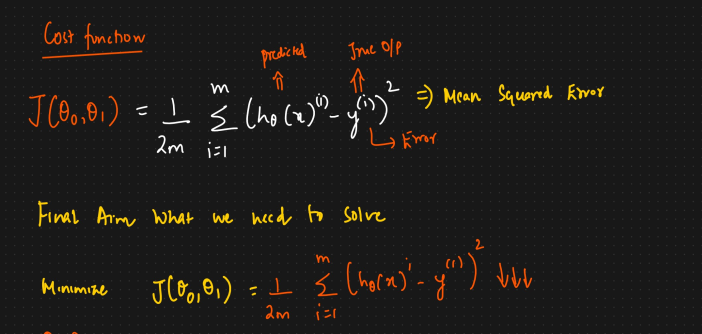 Cost function
predicted True O/P
J(θ₀,θ₁) = 1/2m Σ_{i=1}^{m} (hθ(x)^{(i)} - y^{(i)})² ⇒ Mean Squared Error
↳ Error
Final Aim What we need to solve
Minimize J(θ₀,θ₁) = 1/2m Σ_{i=1}^{m} (hθ(x)^{i} - y^{(i)})² ↓↓↓